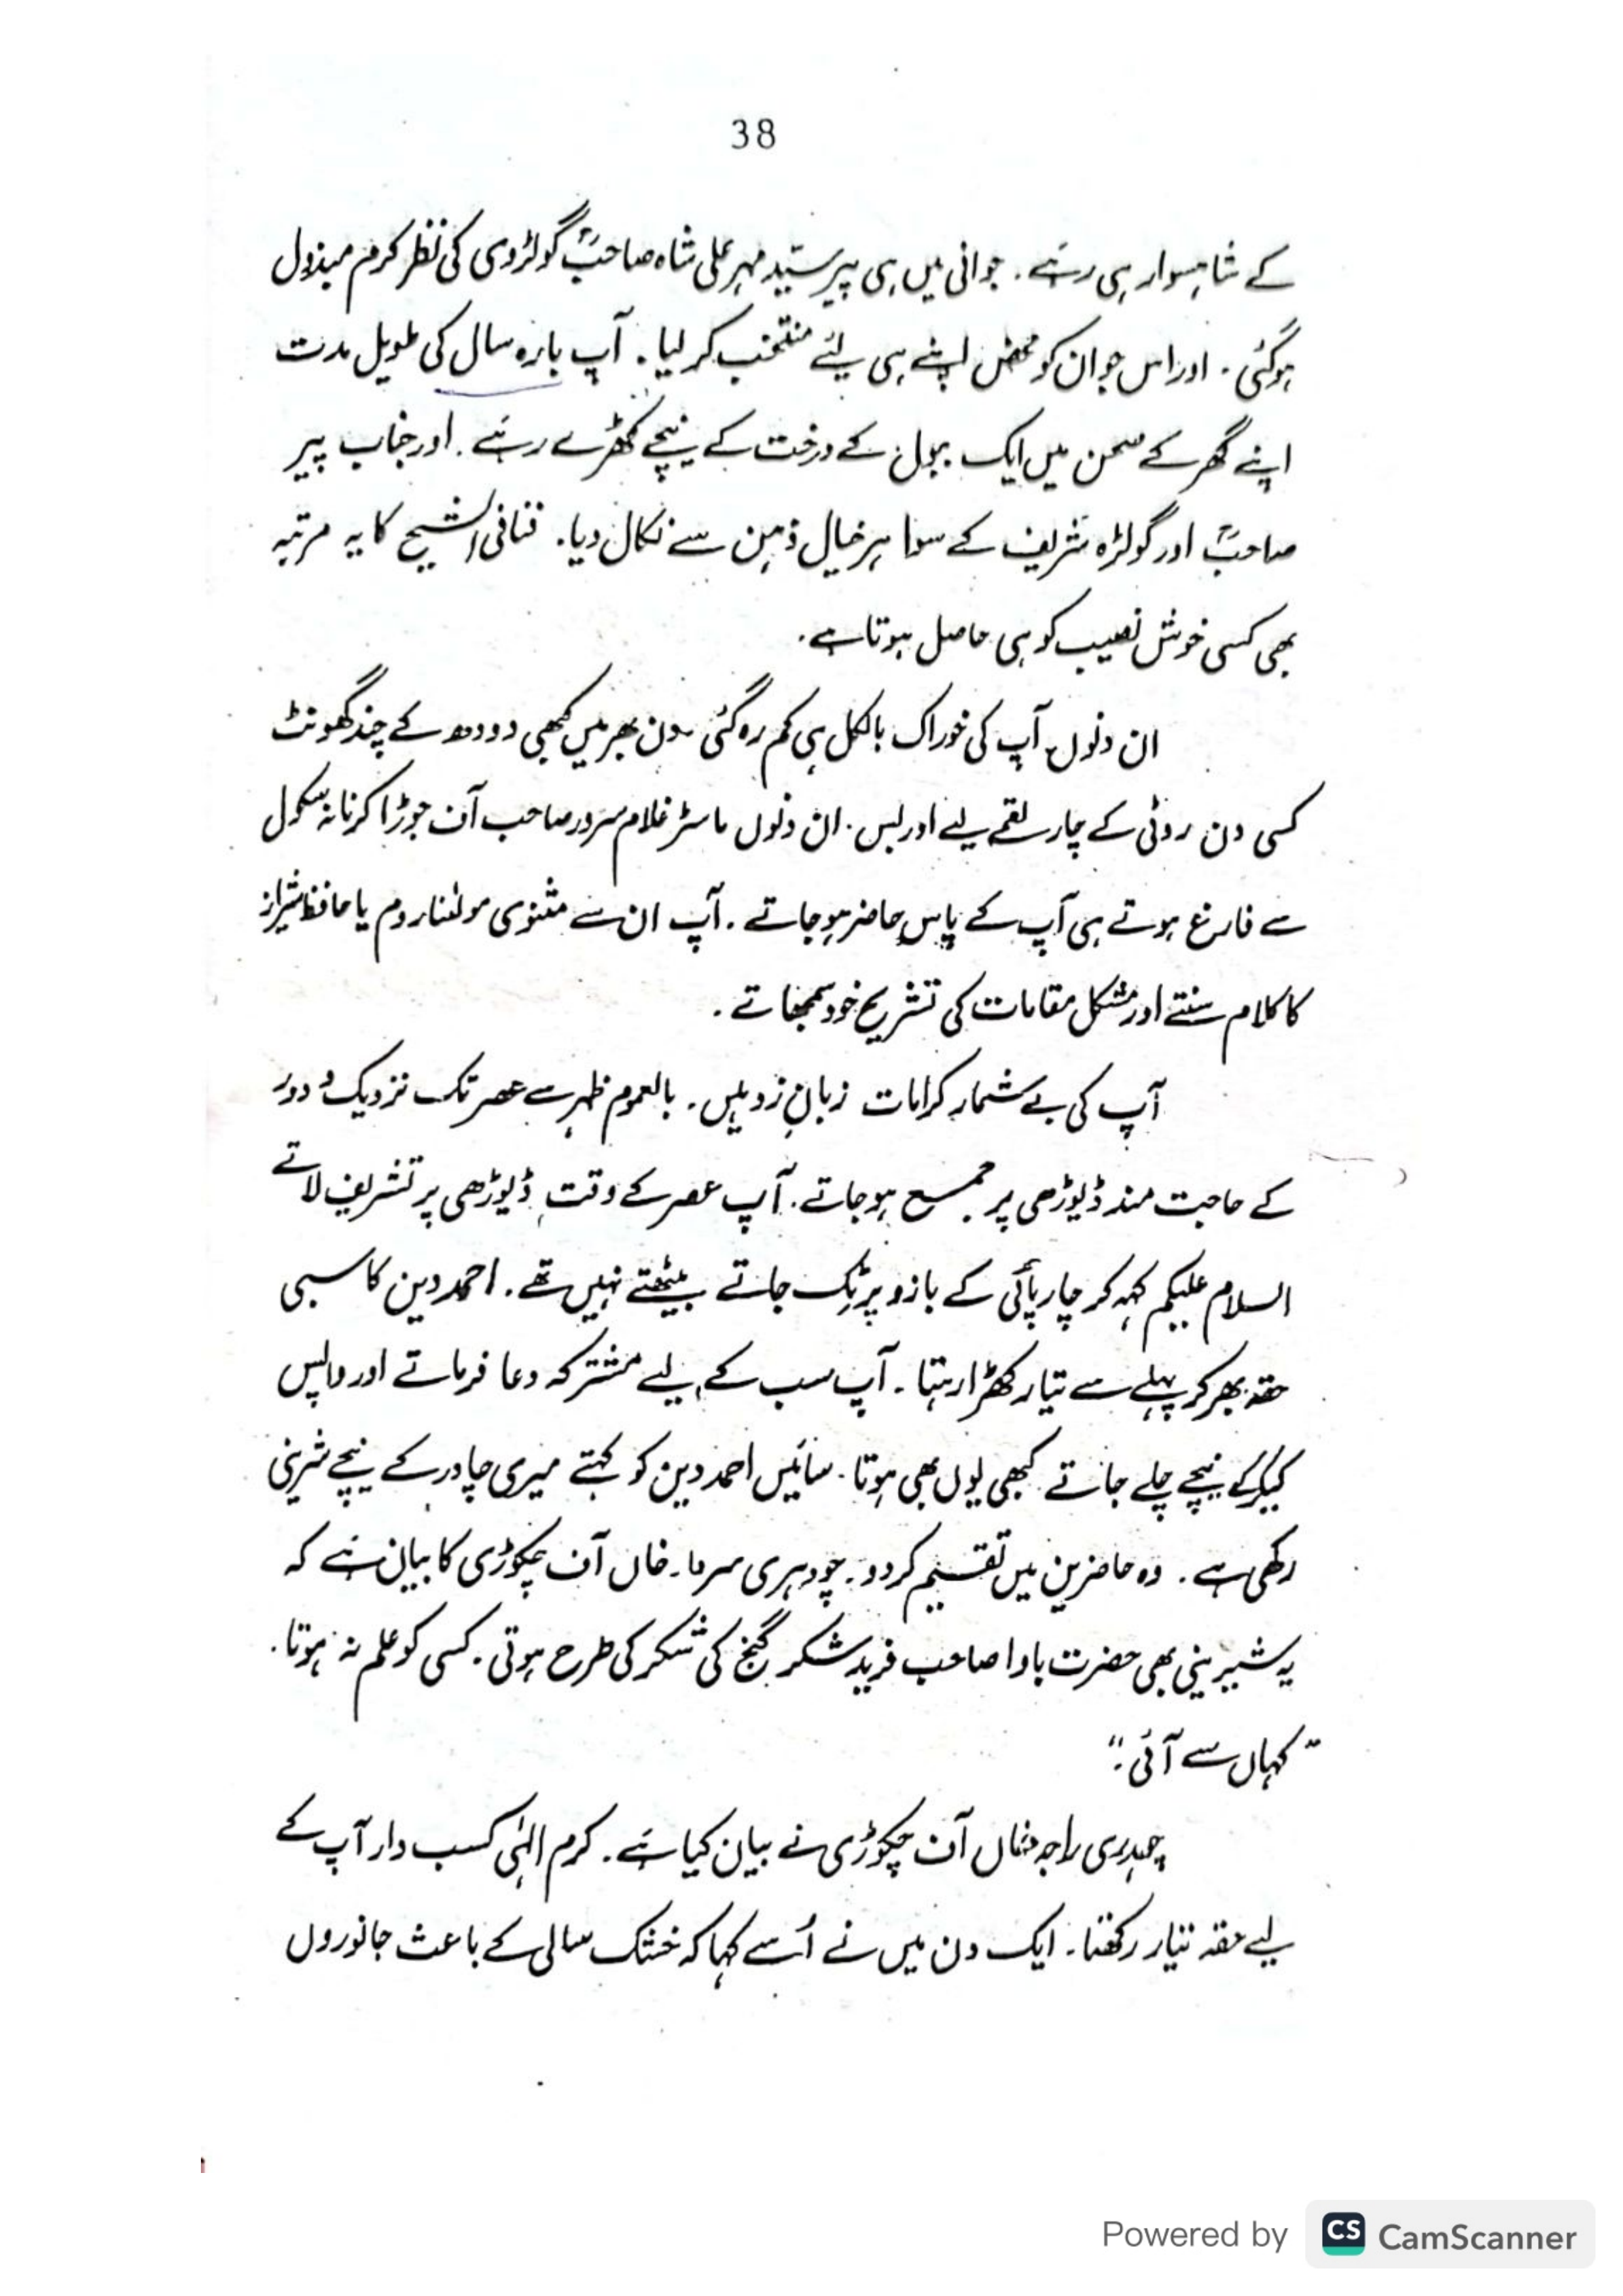 38
کے شاہسوار ہی رہے۔ جوانی میں ہی پیر سیّد مہر علی شاہ صاحبؒ گولڑوی کی نظر کرم مبذول
ہوگئی۔ اور اس جوان کو محض اپنے ہی لیئے منتخب کر لیا۔ آپ بارہ سال کی طویل مدت
اپنے گھر کے صحن میں ایک ببول کے درخت کے نیچے کھڑے رہے۔ اور جناب پیر
صاحبؒ اور گولڑہ شریف کے سوا ہر خیال ذہن سے نکال دیا۔ فنافی الشیخ کا یہ مرتبہ
بھی کسی خوش نصیب کو ہی حاصل ہوتا ہے۔
ان دنوں آپ کی خوراک بالکل ہی کم رہ گئی۔ دن بھر میں کبھی دودھ کے چند گھونٹ
کسی دن روٹی کے چار لقمے لیے اور بس۔ ان دنوں ماسٹر غلام سرور صاحب آف جوڑا کرنانہ سکول
سے فارغ ہوتے ہی آپ کے پاس حاضر ہو جاتے۔ آپ ان سے مثنوی مولٰنا روم یا حافظ شیراز
کا کلام سنتے اور مشکل مقامات کی تشریح خود سمجھاتے۔
آپ کی بے شمار کرامات زبانِ زد ہیں۔ بالعموم ظہر سے عصر تک نزدیک و دور
کے حاجت مند ڈیوڑھی پر جمع ہو جاتے۔ آپ عصر کے وقت ڈیوڑھی پر تشریف لاتے
السلام علیکم کہہ کر چارپائی کے بازو پر ٹِک جاتے بیٹھتے نہیں تھے۔ احمد دین کاسبی
حقہ بھر کر پہلے سے تیار کھڑا رہتا۔ آپ سب کے لیے مشترکہ دعا فرماتے اور واپس
کیکر کے نیچے چلے جاتے کبھی یوں بھی ہوتا۔ سائیں احمد دین کو کہتے میری چادر کے نیچے شرینی
رکھی ہے۔ وہ حاضرین میں تقسیم کر دو۔ چودہری سرما۔ خاں آف چکوڑی کا بیان ہے کہ
یہ شیرینی بھی حضرت باوا صاحب فرید شکر گنج کی شکر کی طرح ہوتی۔ کسی کو علم نہ ہوتا۔
"کہاں سے آئی۔"
چہدری راجہ خاں آف چکوڑی نے بیان کیا ہے۔ کرم الہٰی کسب دار آپ کے
لیے حقہ تیار رکھتا۔ ایک دن میں نے اُسے کہا کہ خشک سالی کے باعث جانوروں
Powered by CS CamScanner